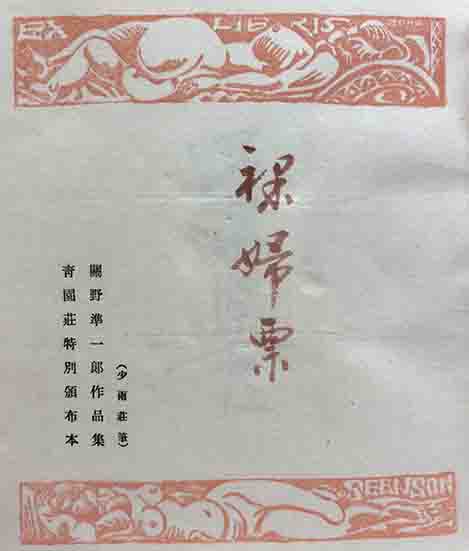 EX LIBRIS
裸婦票
(少雨荘筆)
關野凖一郎作品集
青園荘特別頒布本